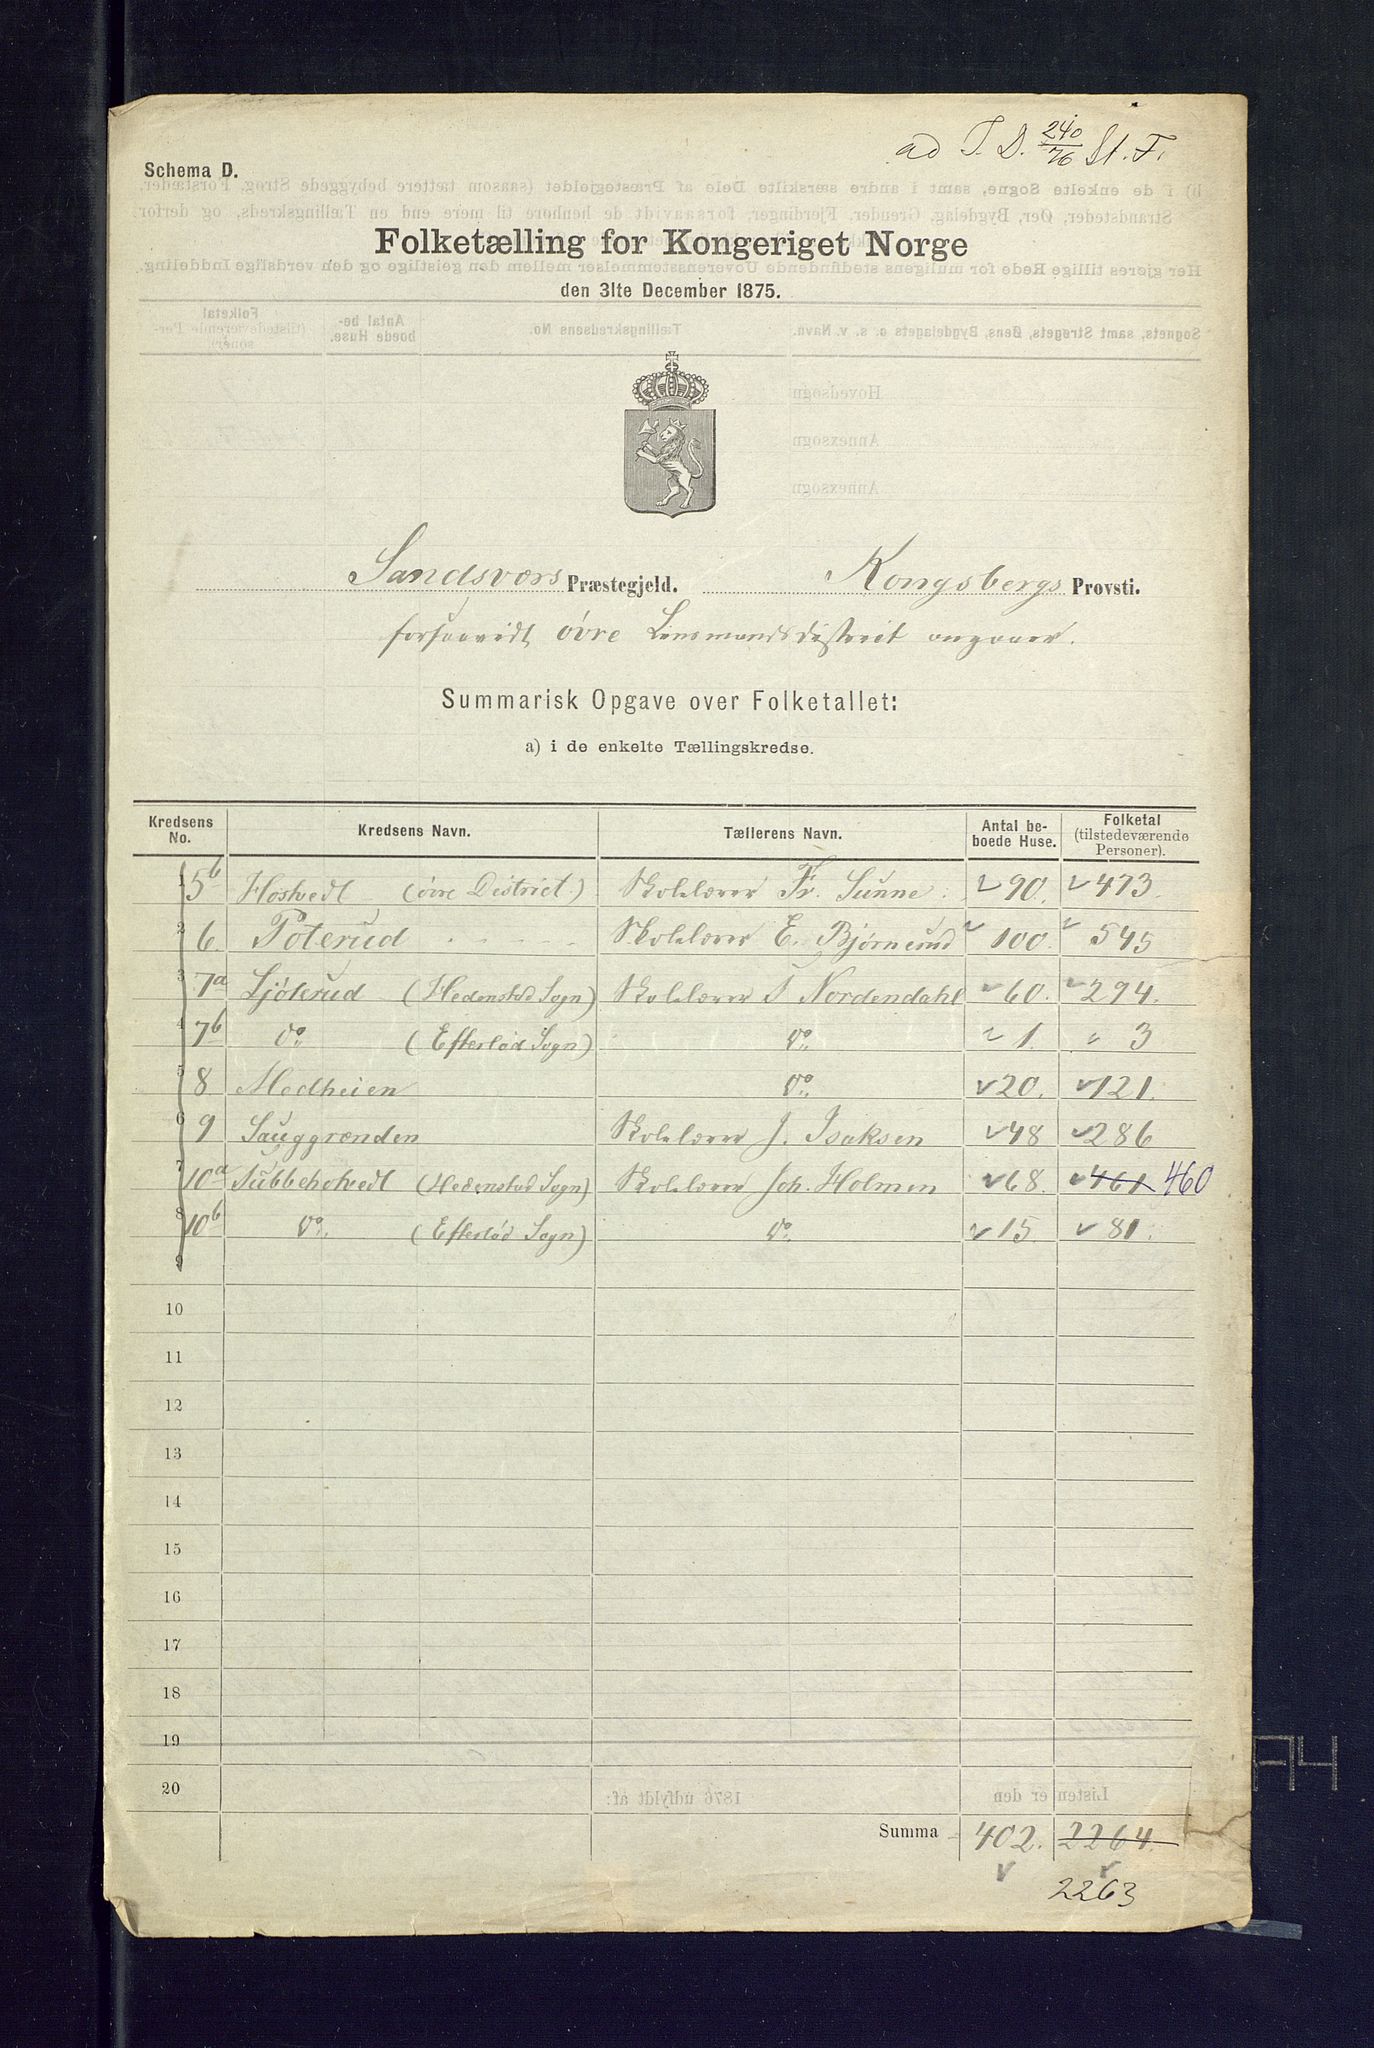 ad T. D. 240/76 St. F.
Schema D.
Folketælling for Kongeriget Norge
den 31te December 1875.
Sandsværs Præstegjeld. Kongsbergs Provsti.
forsaavidt øvre Lensmandsdistrict angaaer.
Summarisk Opgave over Folketallet:
a) i de enkelte Tællingskredse.
Kredsens No. Kredsens Navn. Tællerens Navn. Antal beboede Huse. Folketal (tilstedeværende Personer).
5b Hostvedt (øvre District) Skolelærer Fr. Sunne 90. 473
6 Poterud Skolelærer E. Bjørnerud 100. 545
7a Ljøterud (Hedenstad Sogn) Skolelærer Nordendahl 60. 294.
7b Do. (Efterlød Sogn) Do. 1. 3
8 Medheien Do. 20. 121.
9 Sauggrænden Skolelærer J. Isaksen 48 286
10a (Hedenstad Sogn) Skolelærer Joh. Holmen 68. 461 460
10b Do. (Efterlød Sogn) Do. 15. 81.
9
10
11
12
13
14
15
16
17
18
19
20
Summa 402. 2264.
2263